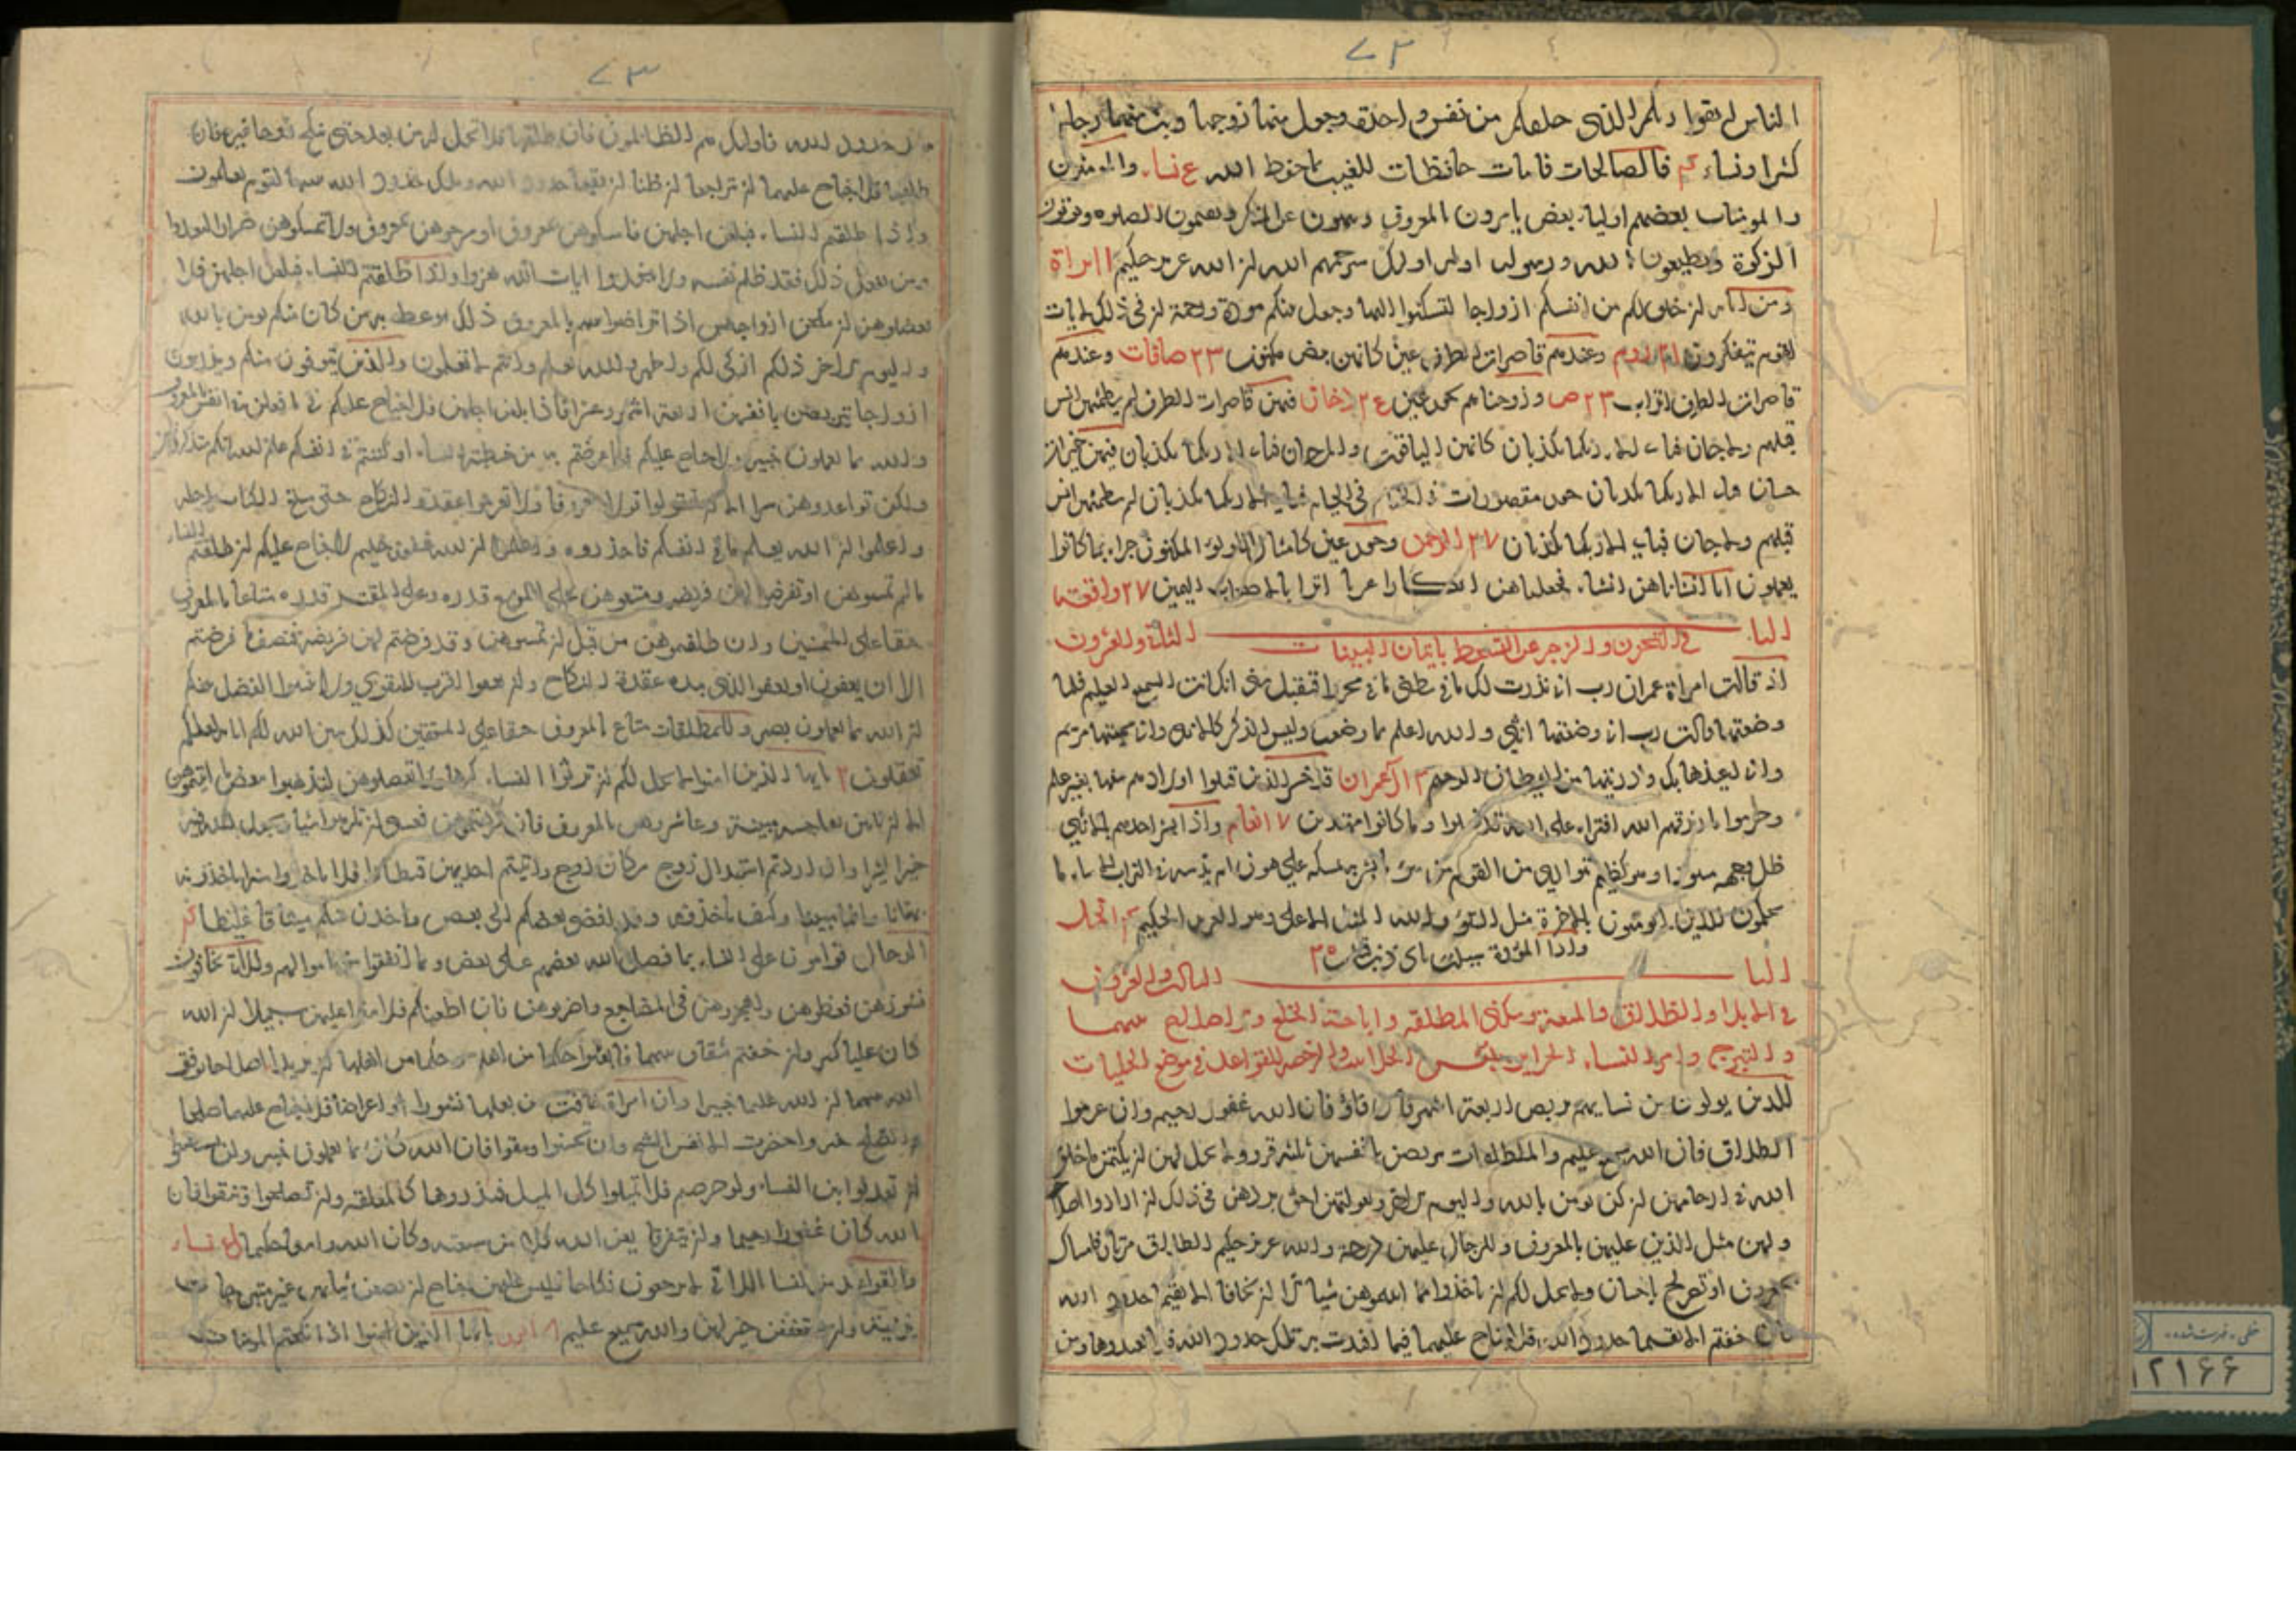 ٧٢
الناس اتقوا ربكم الذى خلقكم من نفس واحدة وجعل منها زوجها وبث منهما رجالا
كثيرا ونساء فالصالحات قانتات حافظات للغيب بما حفظ الله نساء والمؤمنون
والمؤمنات بعضهم اولياء بعض يامرون بالمعروف وينهون عن المنكر ويقيمون الصلوه ويؤتون
الزكوة ويطيعون الله ورسوله اولئك سيرحمهم الله ان الله عزيز حكيم براة
ومن اياته ان خلق لكم من انفسكم ازواجا لتسكنوا اليها وجعل بينكم مودة ورحمة ان فى ذلك لايات
لقوم يتفكرون روم وعندهم قاصرات الطرف عين كانهن بيض مكنون ٢٣ صافات وعندهم
قاصرات الطرف اتراب ٢٣ ص وزوجناهم بحور عين دخان فيهن قاصرات الطرف لم يطمثهن انس
قبلهم ولا جان فباى الاء ربكما تكذبان كانهن الياقوت والمرجان فباى الاء ربكما تكذبان فيهن خيرات
حسان فباى الاء ربكما تكذبان حور مقصورات فى الخيام فباى الاء ربكما تكذبان لم يطمثهن انس
قبلهم ولا جان فباى الاء ربكما تكذبان ٢٧ الرحمن وحور عين كامثال اللولوء المكنون جزاء بما كانوا
يعملون انا انشاناهن انشاء فجعلناهن ابكارا عربا اترابا لاصحاب اليمين ٢٧ واقعة
الباب الثانى والعشرون
فى التحزن والزجر عن السخط باتيان البنات
اذ قالت امراة عمران رب انى نذرت لك ما فى بطنى محررا فتقبل منى انك انت السميع العليم فلما
وضعتها قالت رب انى وضعتها انثى والله اعلم بما وضعت وليس الذكر كالانثى وانى سميتها مريم
وانى اعيذها بك وذريتها من الشيطان الرجيم ٣ ال عمران قد خسر الذين قتلوا اولادهم سفها بغير علم
وحرموا ما رزقهم الله افتراء على الله قد ضلوا وما كانوا مهتدين ٧ انعام واذا بشر احدهم بالانثى
ظل وجهه مسودا وهو كظيم يتوارى من القوم من سوء ما بشر به ايمسكه على هون ام يدسه فى التراب الا ساء ما
يحكمون للذين لا يؤمنون بالاخرة مثل السوء ولله المثل الاعلى وهو العزيز الحكيم النحل
واذا الموؤدة سئلت باى ذنب قتلت
الباب الثالث والعشرون
فى الايلاء والطلاق والمتعة وسكنى المطلقه واباحة الخلع
للذين يولون من نسايهم تربص اربعة اشهر فان فاؤ فان الله غفور رحيم وان عزموا
الطلاق فان الله سميع عليم والمطلقات يتربصن بانفسهن ثلثة قروء ولا يحل لهن ان يكتمن ما خلق
الله فى ارحامهن ان كن يومن بالله واليوم الاخر وبعولتهن احق بردهن فى ذلك ان ارادوا اصلاحا
ولهن مثل الذى عليهن بالمعروف وللرجال عليهن درجة والله عزيز حكيم الطلاق مرتان فامساك
بمعروف او تسريح باحسان ولا يحل لكم ان تاخذوا مما اتيتموهن شيئا الا ان يخافا الا يقيما حدود الله
فان خفتم الا يقيما حدود الله فلا جناح عليهما فيما افتدت به تلك حدود الله فلا تعتدوها ومن
٧٣
يتعد حدود الله فاولئك هم الظالمون فان طلقها فلا تحل له من بعد حتى تنكح زوجا غيره فان
طلقها فلا جناح عليهما ان يتراجعا ان ظنا ان يقيما حدود الله وتلك حدود الله يبينها لقوم يعلمون
واذا طلقتم النساء فبلغن اجلهن فامسكوهن بمعروف او سرحوهن بمعروف ولا تمسكوهن ضرارا لتعتدوا
ومن يفعل ذلك فقد ظلم نفسه ولا تتخذوا ايات الله هزوا واذا طلقتم النساء فبلغن اجلهن فلا
تعضلوهن ان ينكحن ازواجهن اذا تراضوا بينهم بالمعروف ذلك يوعظ به من كان منكم يومن بالله
واليوم الاخر ذلكم ازكى لكم واطهر والله يعلم وانتم لا تعلمون والذين يتوفون منكم ويذرون
ازواجا يتربصن بانفسهن اربعة اشهر وعشرا فاذا بلغن اجلهن فلا جناح عليكم فيما فعلن فى انفسهن بالمعروف
والله بما تعملون خبير ولا جناح عليكم فيما عرضتم به من خطبة النساء او اكننتم فى انفسكم علم الله انكم ستذكرونهن
ولكن لا تواعدوهن سرا الا ان تقولوا قولا معروفا ولا تعزموا عقدة النكاح حتى يبلغ الكتاب اجله
واعلموا ان الله يعلم ما فى انفسكم فاحذروه واعلموا ان الله غفور حليم لا جناح عليكم ان طلقتم النساء
ما لم تمسوهن او تفرضوا لهن فريضه ومتعوهن على الموسع قدره وعلى المقتر قدره متاعا بالمعروف
حقا على المحسنين وان طلقتموهن من قبل ان تمسوهن وقد فرضتم لهن فريضة فنصف ما فرضتم
الا ان يعفون او يعفوا الذى بيده عقدة النكاح وان تعفوا اقرب للتقوى ولا تنسوا الفضل بينكم
ان الله بما تعملون بصير وللمطلقات متاع بالمعروف حقا على المتقين كذلك يبين الله لكم اياته لعلكم
تعقلون ٢ يايها الذين امنوا لا يحل لكم ان ترثوا النساء كرها ولا تعضلوهن لتذهبوا ببعض ما اتيتموهن
الا ان ياتين بفاحشه مبينة وعاشروهن بالمعروف فان كرهتموهن فعسى ان تكرهوا شيئا ويجعل الله فيه
خيرا كثيرا وان اردتم استبدال زوج مكان زوج واتيتم احديهن قنطارا فلا تاخذوا منه شيئا اتاخذونه
بهتانا واثما مبينا وكيف تاخذونه وقد افضى بعضكم الى بعض واخذن منكم ميثاقا غليظا
الرجال قوامون على النساء بما فضل الله بعضهم على بعض وبما انفقوا من اموالهم واللاتى تخافون
نشوزهن فعظوهن واهجروهن فى المضاجع واضربوهن فان اطعنكم فلا تبغوا عليهن سبيلا ان الله
كان عليا كبيرا وان خفتم شقاق بينهما فابعثوا حكما من اهله وحكما من اهلها ان يريدا اصلاحا يوفق
الله بينهما ان الله كان عليما خبيرا وان امراة خافت من بعلها نشوزا او اعراضا فلا جناح عليهما ان يصلحا
والصلح خير واحضرت الانفس الشح وان تحسنوا وتتقوا فان الله كان بما تعملون خبيرا ولن تستطيعوا
ان تعدلوا بين النساء ولو حرصتم فلا تميلوا كل الميل فتذروها كالمعلقه وان تصلحوا وتتقوا فان
الله كان غفورا رحيما وان يتفرقا يغن الله كلا من سعته وكان الله واسعا حكيما نساء
والقواعد من النساء اللاتى لا يرجون نكاحا فليس عليهن جناح ان يضعن ثيابهن غير متبرجات
بزينة وان يستعففن خير لهن والله سميع عليم نور يايها الذين امنوا اذا نكحتم المومنات
خطى فهرست شده
١٢١٦٦